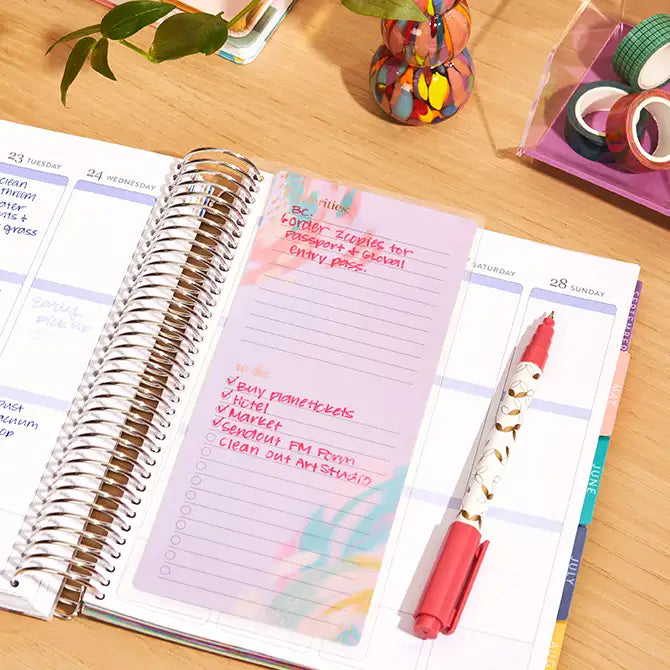 23 TUESDAY
clean
grass
24 WEDNESDAY
Early
pick up
priorities:
BC:
6order 2copies for
Passport & Global
entry pass.
to-do:
✓Buy planetickets
✓Hotel
✓Market
✓Sendout FM Form
✓Clean out Art Studio
SATURDAY
28 SUNDAY
SEPTEMBER
MAY
JUNE
JULY